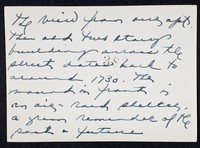 The view from our apt.
The old two story
building across the
street dates back to
around 1730. The
mound in front is
an air-raid shelter,
a grim reminder of the
past & future